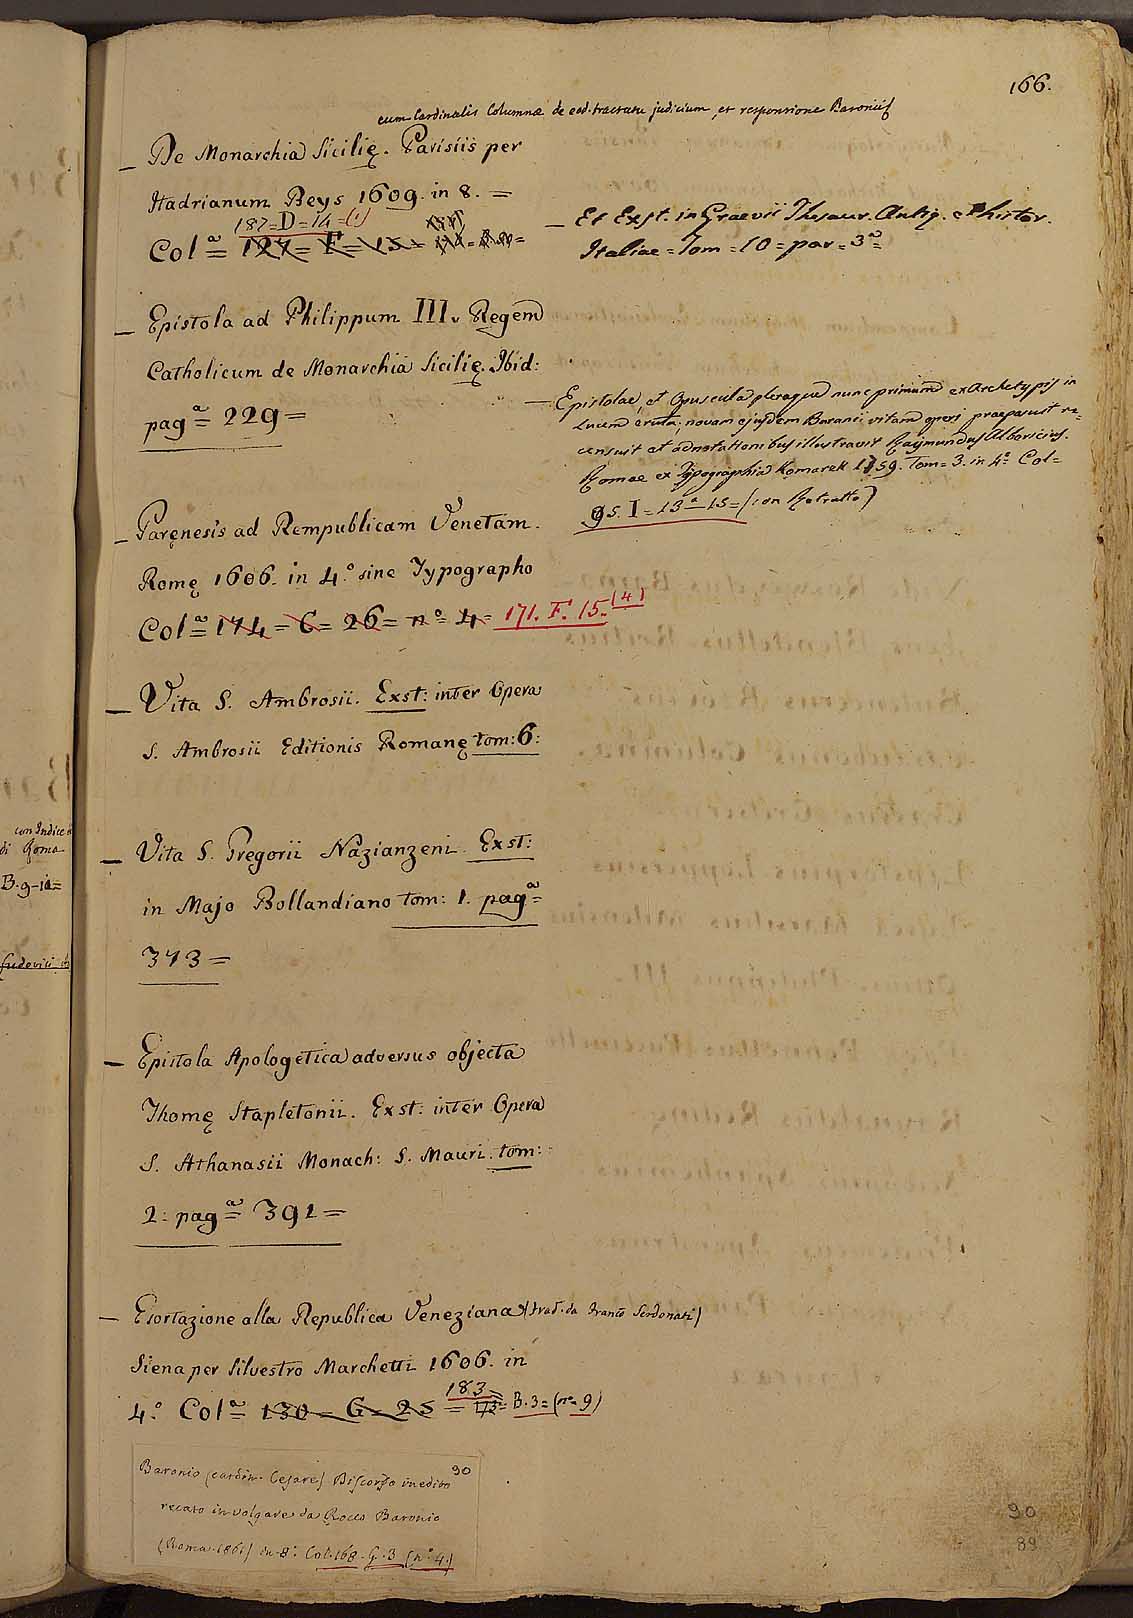 166.
cum Cardinalis Columnæ de eod. tractatu judicium, et responsione Baronii
_ De Monarchia Sicilię. Parisiis per
Hadrianum Beys 1609. in 8. =
187=D=14=(1)
Colª= 127= F= 15=
_ Et Exst. in Graevii Thesaur. Antiq. et Histor.
Italiae = Tom = 10 = par = 3ª=
_ Epistola ad Philippum III. Regem
Catholicum de Monarchia Sicilię. Ibid:
pagª= 229=
_ Epistolae, et Opuscula pleraque nunc primum ex Archetypis in
lucem eruta; novam ejusdem Baronii vitam operi praeposuit re=
censuit et adnotationibus illustravit Raymundus Albericius.
Romae ex Typographia Komarek 1759. Tom= 3. in 4º= Col=
95. I= 13ª-15= (con Ritratto)
_ Paręnesis ad Rempublicam Venetam.
Romę 1606. in 4.º sine Typographo
Colª= 174= C= 26= nº= 4= 171. F. 15. (4)
_ Vita S. Ambrosii. Exst: inter Opera
S. Ambrosii Editionis Romanę tom: 6:
_ Vita S. Gregorii Nazianzeni. Exst:
in Majo Bollandiano tom: 1. pagª=
373=
_ Epistola Apologetica adversus objecta
Thomę Stapletonii. Exst: inter Opera
S. Athanasii Monach: S. Mauri. tom:
2: pagª= 391=
_ Esortazione alla Republica Veneziana (trad. da Franco Serdonati)
Siena per Silvestro Marchetti 1606. in
183=
4.º Colª= 130= G= 25= 173= B.3= (nº= 9)
Baronio (cardin. Cesare) Discorso inedito 90
recato in volgare da Rocco Baronio
(Roma 1861) in-8º. Col. 168. G. 3 (nº 4.)
90
89
con Indice
di Roma
B.9-12=
Ludovici